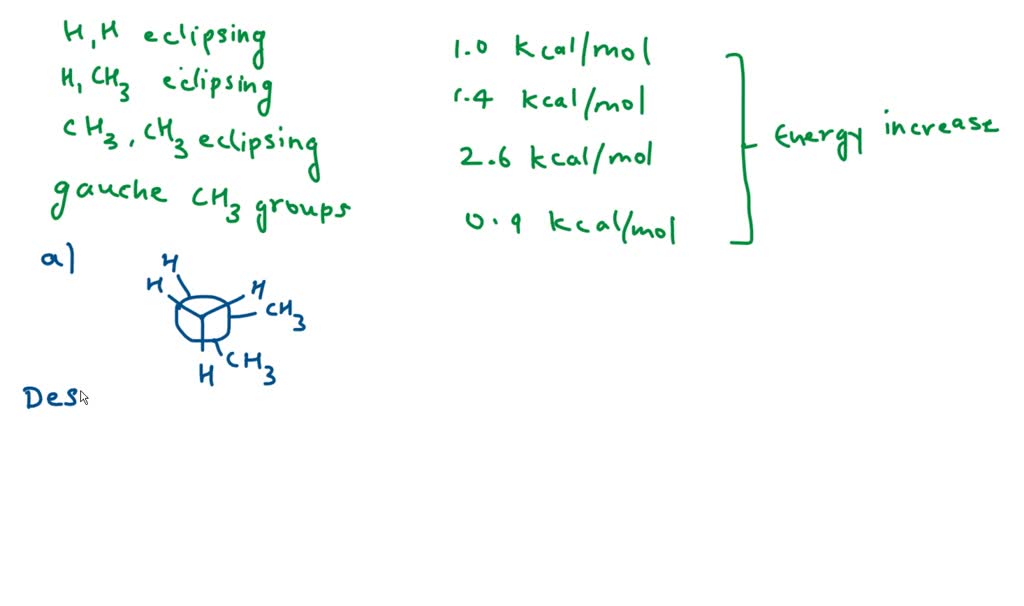 H, H eclipsing 1.0 kcal/mol
H, CH3 eclipsing 1.4 kcal/mol
CH3, CH3 eclipsing 2.6 kcal/mol
gauche CH3 groups 0.9 kcal/mol
Energy increase
a)
H
H H
CH3
CH3
H
Des